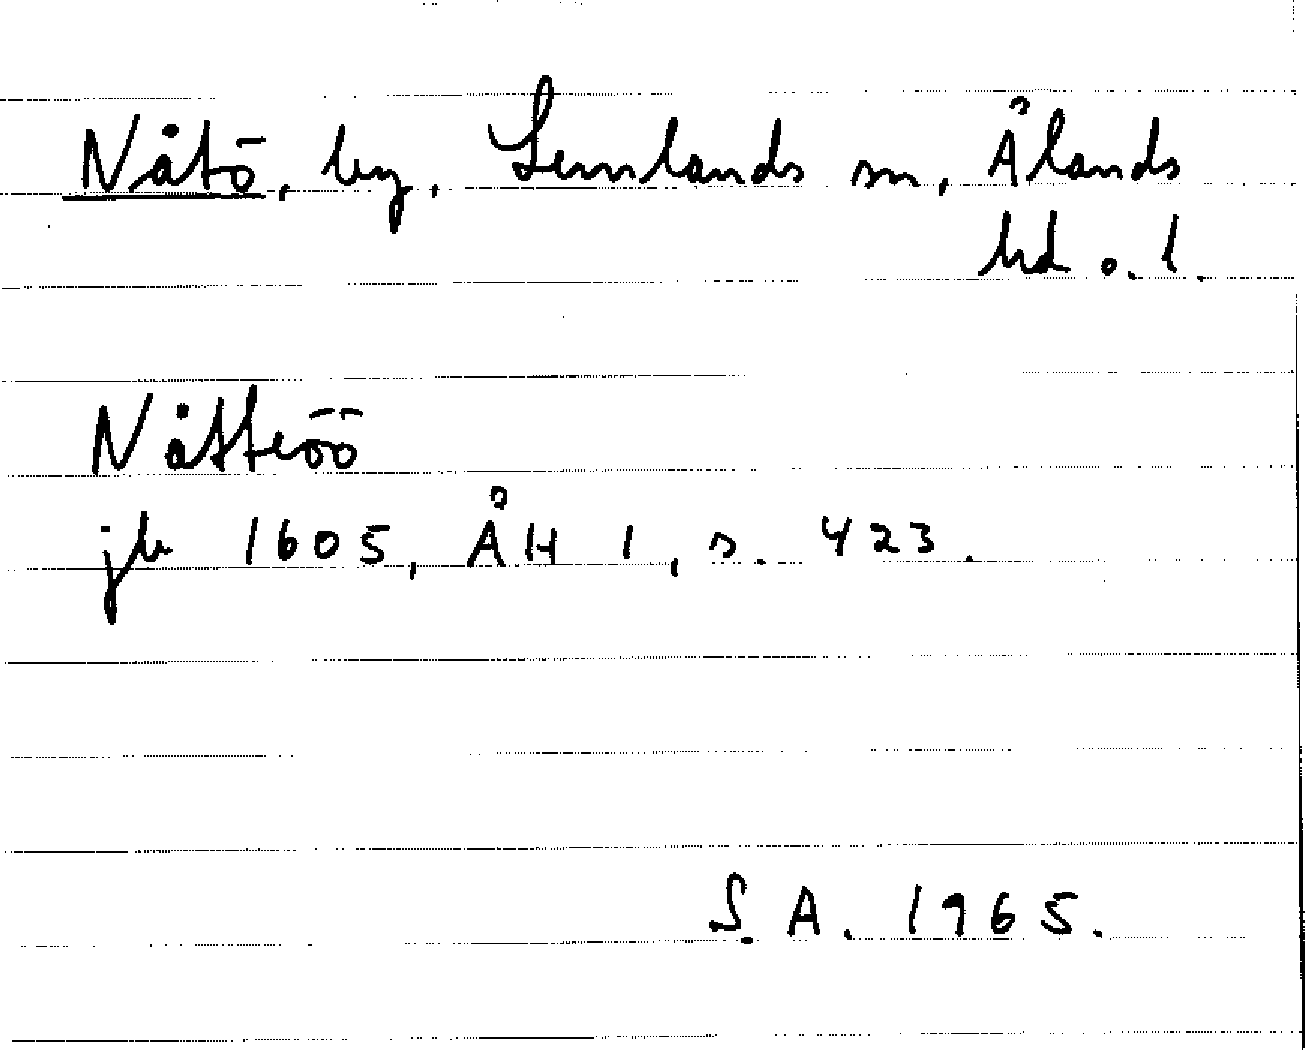 Nåtö, by, Lemlands sn, Ålands
hd o. l.
Nåtteöö
jb 1605, ÅH 1, s. 423.
S. A. 1965.